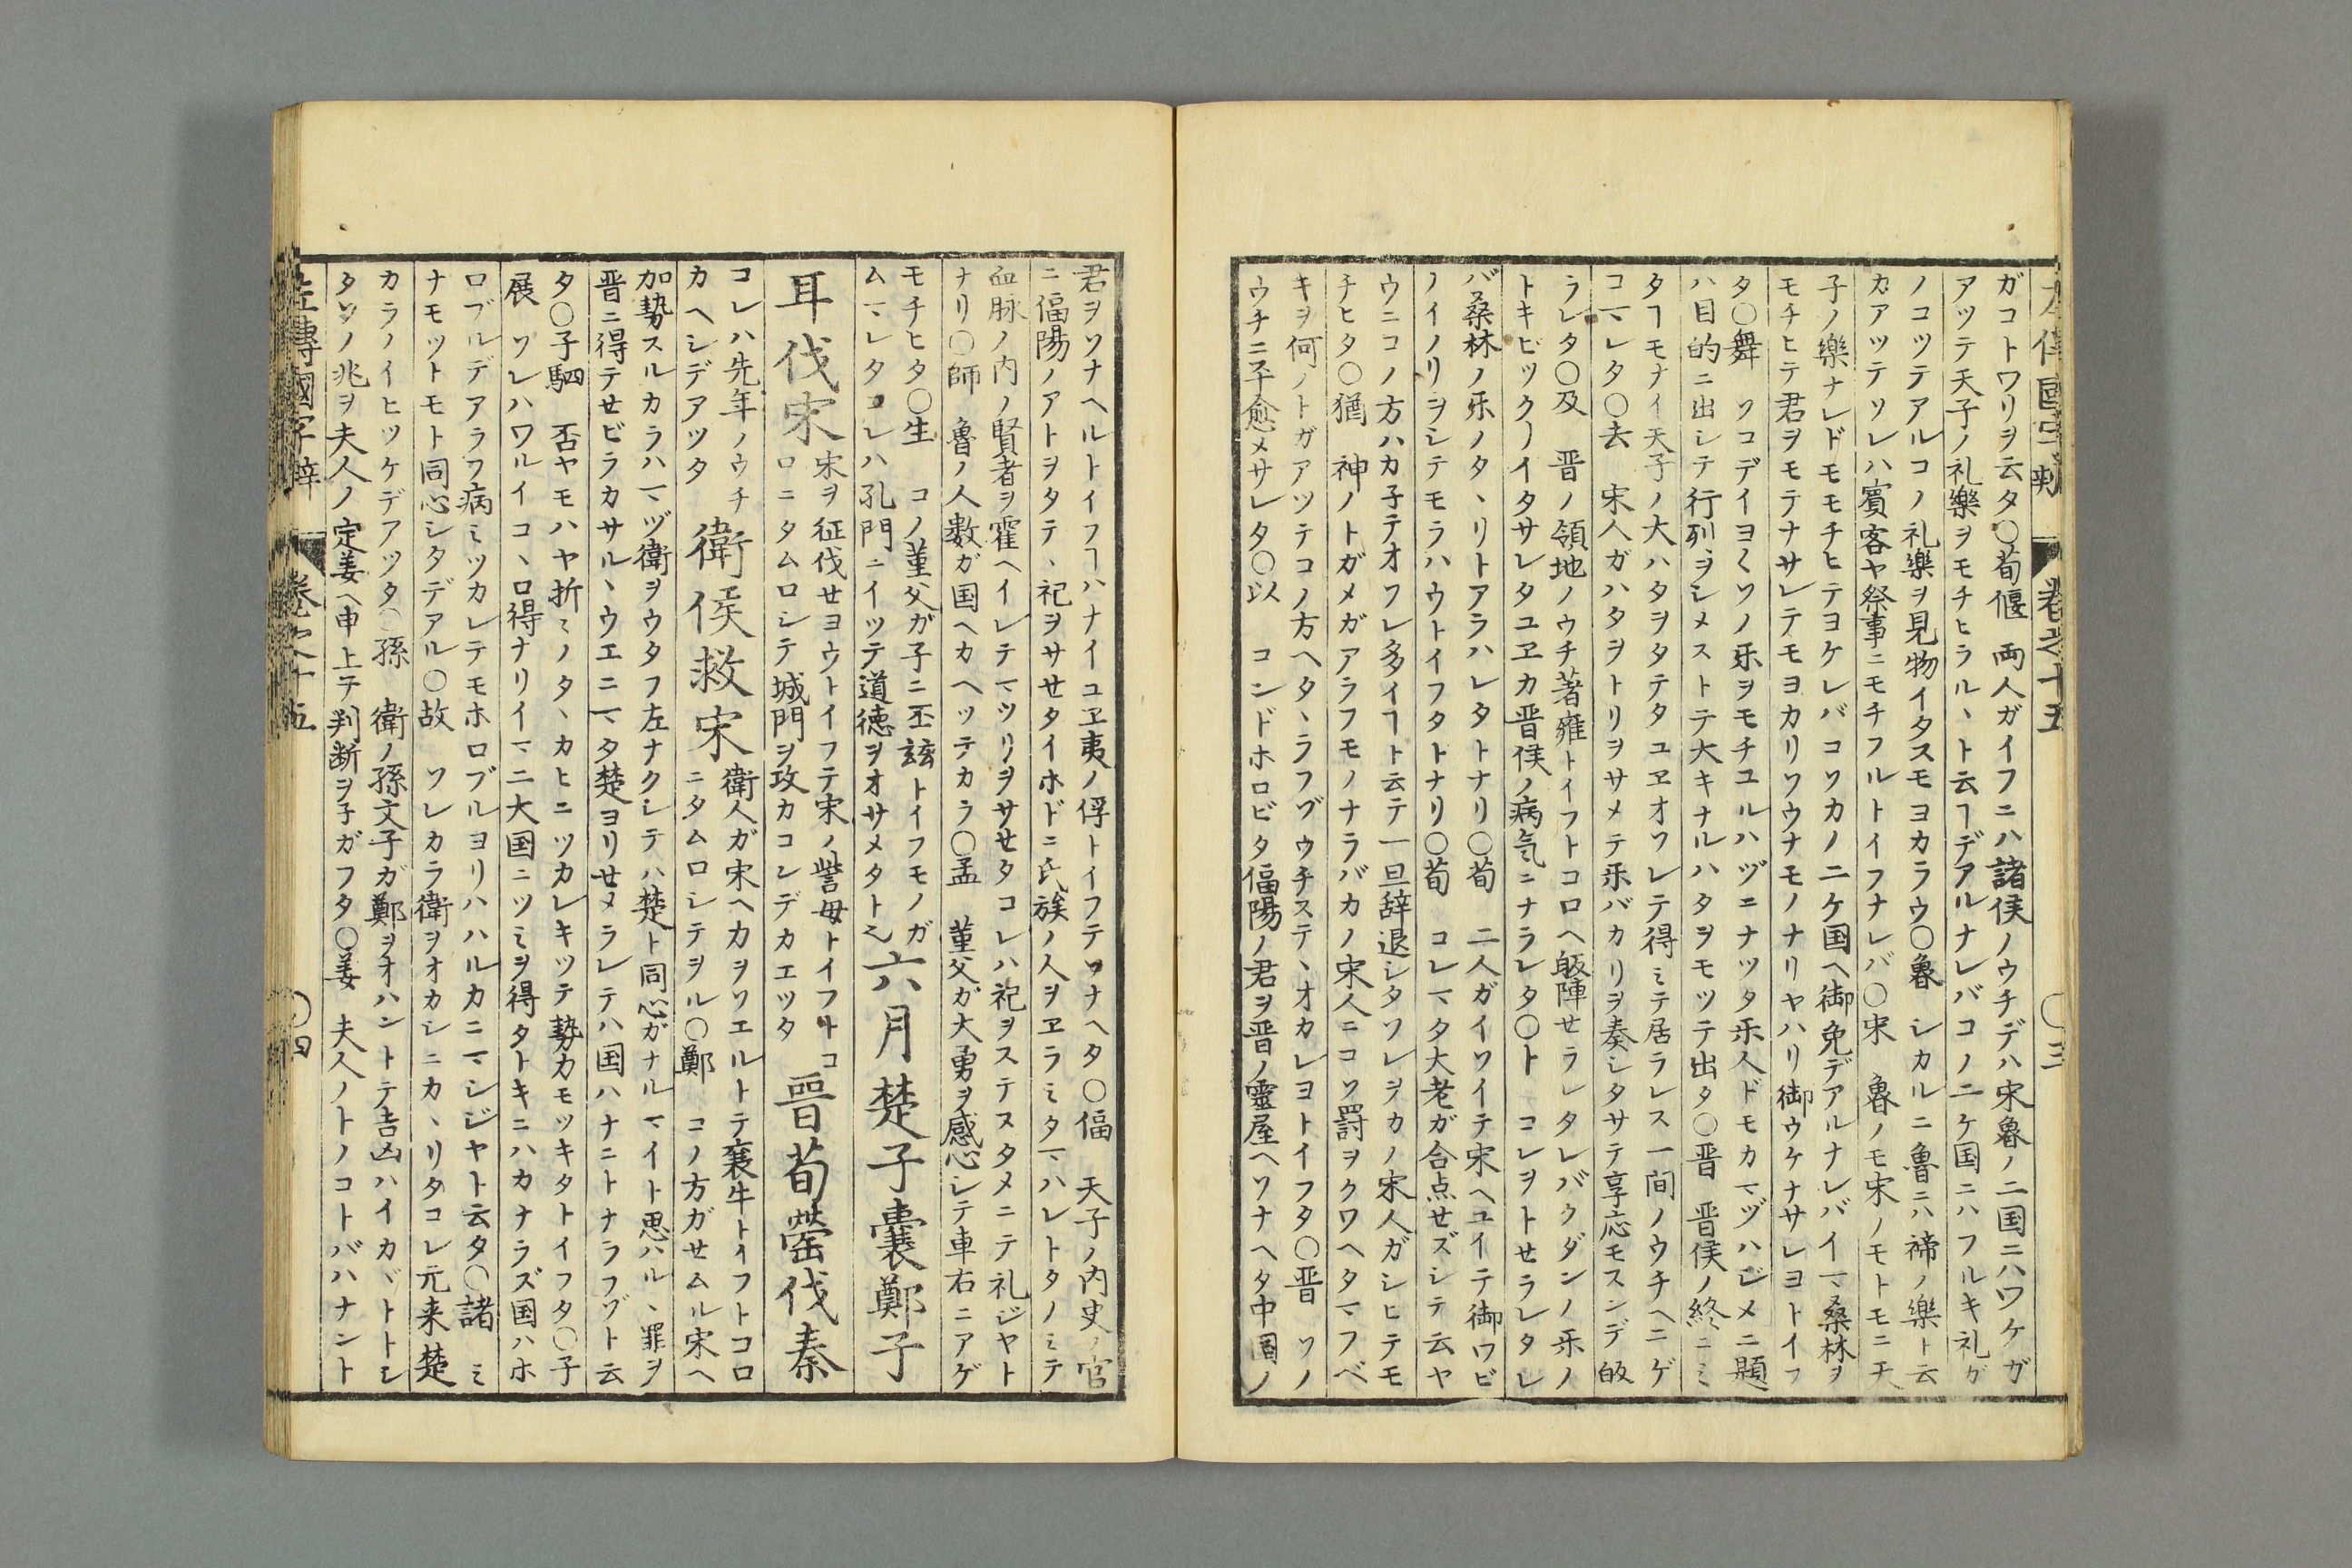 左傳國字辯 卷之十五 〇三
ガコトワリヲ云タ〇荀偃 両人ガイフニハ諸侯ノウチデハ宋魯ノ二国ニハワケガ
アツテ天子ノ礼樂ヲモチヒラル丶ト云ヿデアルナレバコノ二ケ国ニハフルキ礼ガ
ノコツテアルコノ礼樂ヲ見物イタスモヨカラウ〇魯 シカルニ魯ニハ禘ノ樂ト云
カアツテソレハ賓客ヤ祭事ニモチフルトイフナレバ〇宋 魯ノモ宋ノモトモニ天
子ノ樂ナレドモモチヒテヨケレバコソカノ二ケ国ヘ御免デアルナレバイマ桑林ヲ
モチヒテ君ヲモテナサレテモヨカリソウナモノナリヤハリ御ウケナサレヨトイフ
タ〇舞 ソコデイヨ〱ソノ乐ヲモチユルハヅニナツタ乐人ドモカマヅハジメニ題
ハ目的ニ出シテ行列ヲシメストテ大キナルハタヲモツテ出タ〇晋 晋侯ノ終ニミ
タヿモナイ天子ノ大ハタヲタテタユヱオソレテ得ミテ居ラレス一间ノウチヘニゲ
コマレタ〇去 宋人ガハタヲトリヲサメテ乐バカリヲ奏シタサテ享応モスンデ皈
ラレタ〇及 晋ノ領地ノウチ著雍トイフトコロヘ皈陣セラレタレバクダンノ乐ノ
トキビツクノイタサレタユヱカ晋侯ノ病気ニナラレタ〇ト コレヲトセラレタレ
バ桑林ノ乐ノタ丶リトアラハレタトナリ〇荀 二人ガイソイテ宋ヘユイテ御ワビ
ノイノリヲシテモラハウトイフタトナリ〇荀 コレマタ大老ガ合点せズシテ云ヤ
ウニコノ方ハカ子テオフレ多イヿト云テ一旦辞退シタソレヲカノ宋人ガシヒテモ
チヒタ〇猶 神ノトガメガアラフモノナラバカノ宋人ニコソ罸ヲクワヘタマフベ
キヲ何ノトガアツテコノ方ヘタ丶ラフゾウチステ丶オカレヨトイフタ〇晋 ソノ
ウチニ平愈メサレタ〇以 コンドホロビタ偪陽ノ君ヲ晋ノ靈屋ヘソナヘタ中國ノ
君ヲソナヘルトイフヿハナイユヱ夷ノ俘トイフテソナヘタ〇偪 天子ノ内史ノ官
ニ偪陽ノアトヲタテ丶祀ヲサせタイホドニ氏族ノ人ヲヱラミタマハレトタノミテ
血脉ノ内ノ賢者ヲ霍ヘイレテマツリヲサせタコレハ祀ヲステヌタメニテ礼ジヤト
ナリ〇師 魯ノ人数ガ国ヘカヘツテカラ〇孟 董父ガ大勇ヲ感心シテ車右ニアゲ
モチヒタ〇生 コノ董父ガ子ニ丕玆トイフモノガ
ムマレタコレハ孔門ニイツテ道徳ヲオサメタト也 六月楚子囊鄭子
耳伐宋 宋ヲ征伐せヨウトイフテ宋ノ訾毋トイフトコ
ロニタムロシテ城門ヲ攻カコンデカエツタ 晉荀罃伐秦
コレハ先年ノウチ
カヘシデアツタ 衛侯救宋 衛人ガ宋ヘカヲソエルトテ襄牛トイフトコロ
ニタムロシテヲル〇鄭 コノ方ガせムル宋ヘ
加勢スルカラハマヅ衛ヲウタフ左ナクシテハ楚ト同心ガナルマイト思ハル丶罪ヲ
晋ニ得テせビラカサル丶ウエニマタ楚ヨリせメラレテハ国ハナニトナラフゾト云
タ〇子駟 否ヤモハヤ折ミノタ丶カヒニツカレキツテ勢力モツキタトイフタ〇子
展 ソレハワルイコ丶ロ得ナリイマ二大国ニツミヲ得タトキニハカナラズ国ハホ
ロブルデアラフ病ミツカレテモホロブルヨリハハルカニマシジヤト云タ〇諸 ミ
ナモツトモト同心シタデアル〇故 ソレカラ衛ヲオカシニカ丶リタコレ元来楚
カラノイヒツケデアツタ〇孫 衛ノ孫文子ガ鄭ヲオハントテ吉凶ハイカヾトトシ
タソノ兆ヲ夫人ノ定姜ヘ申上テ判断ヲ子ガフタ〇姜 夫人ノトノコトバハナント
左傳國字辯 卷之十五 〇四